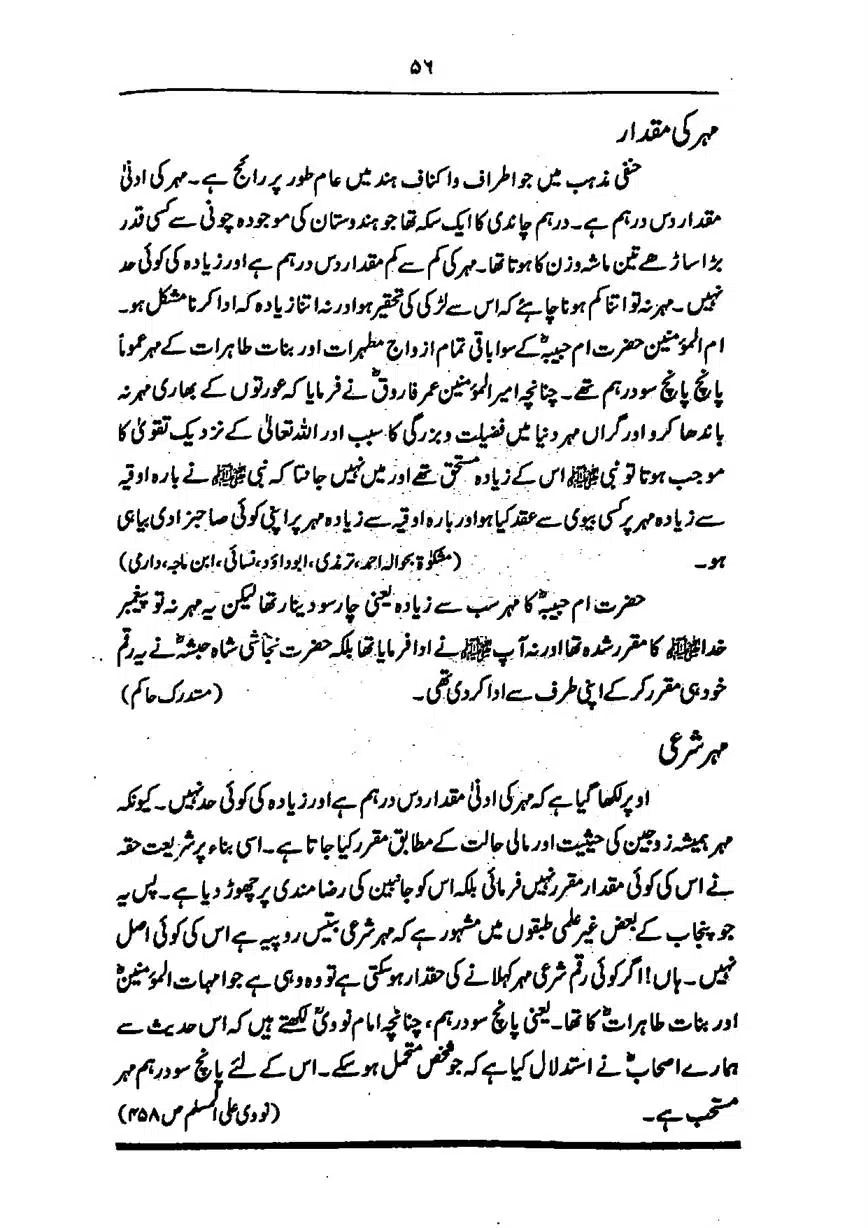 ۵۶
مہر کی مقدار
حنفی مذہب میں جو اطراف و اکناف ہند میں عام طور پر رائج ہے۔ مہر کی ادنیٰ
مقدار دس درہم ہے۔ درہم چاندی کا ایک سکہ تھا جو ہندوستان کی موجودہ چونی سے کسی قدر
بڑا ساڑھے تین ماشہ وزن کا ہوتا تھا۔ مہر کی کم سے کم مقدار دس درہم ہے اور زیادہ کی کوئی حد
نہیں۔ مہر نہ تو اتنا کم ہونا چاہئے کہ اس سے لڑکی کی تحقیر ہو اور نہ اتنا زیادہ کہ ادا کرنا مشکل ہو۔
ام المؤمنین حضرت ام حبیبہؓ کے سوا باقی تمام ازواج مطہرات اور بنات طاہرات کے مہر عموماً
پانچ پانچ سو درہم تھے۔ چنانچہ امیر المؤمنین عمر فاروقؓ نے فرمایا کہ عورتوں کے بھاری مہر نہ
باندھا کرو اور گراں مہر دنیا میں فضیلت و بزرگی کا سبب اور اللہ تعالیٰ کے نزدیک تقویٰ کا
موجب ہوتا تو نبی ﷺ اس کے زیادہ مستحق تھے اور میں نہیں جانتا کہ نبی ﷺ نے بارہ اوقیہ
سے زیادہ مہر پر کسی بیوی سے عقد کیا ہو اور بارہ اوقیہ سے زیادہ مہر پر اپنی کوئی صاحبزادی بیاہی
ہو۔ (مشکوٰۃ بحوالہ احمد، ترمذی، ابوداؤد، نسائی، ابن ماجہ، داری)
حضرت ام حبیبہؓ کا مہر سب سے زیادہ یعنی چار سو دینار تھا لیکن یہ مہر نہ تو پیغمبر
خدا ﷺ کا مقرر شدہ تھا اور نہ آپ ﷺ نے ادا فرمایا تھا بلکہ حضرت نجاشی شاہ حبشہؓ نے یہ رقم
خود ہی مقرر کر کے اپنی طرف سے ادا کر دی تھی۔ (متدرک حاکم)
مہر شرعی
اوپر لکھا گیا ہے کہ مہر کی ادنیٰ مقدار دس درہم ہے اور زیادہ کی کوئی حد نہیں۔ کیونکہ
مہر ہمیشہ زوجین کی حیثیت اور مالی حالت کے مطابق مقرر کیا جاتا ہے۔ اسی بناء پر شریعت حقہ
نے اس کی کوئی مقدار مقرر نہیں فرمائی بلکہ اس کو جانبین کی رضا مندی پر چھوڑ دیا ہے۔ پس یہ
جو پنجاب کے بعض غیر علمی طبقوں میں مشہور ہے کہ مہر شرعی بتیس روپیہ ہے اس کی کوئی اصل
نہیں۔ ہاں! اگر کوئی رقم شرعی مہر کہلانے کی حقدار ہو سکتی ہے تو وہ وہی ہے جو امہات المؤمنینؓ
اور بنات طاہراتؓ کا تھا۔ یعنی پانچ سو درہم، چنانچہ امام نوویؒ لکھتے ہیں کہ اس حدیث سے
ہمارے اصحابؒ نے استدلال کیا ہے کہ جو شخص متحمل ہو سکے۔ اس کے لئے پانچ سو درہم مہر
مستحب ہے۔ (نووی علی المسلم ص ۴۵۸)